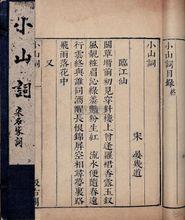 小山詞目錄終
小山詞
宋 晏幾道
臨江仙
鬭草堦前初見穿針樓上曾逢羅裙香露玉釵
風靚粧眉沁綠羞臉粉生紅 流水便隨春遠行
雲終與誰同酒醒長恨錦屏空相尋夢裏路
飛雨落花中
又
小山詞
小山詞
宋名家詞